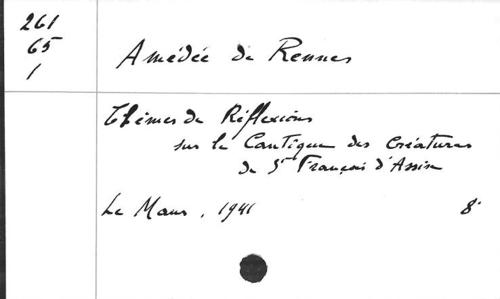 261
65
1
Amédée de Rennes
Thèmes de Réflexions
sur le Cantique des Créatures
de St François d'Assise
Le Mans, 1941 8°